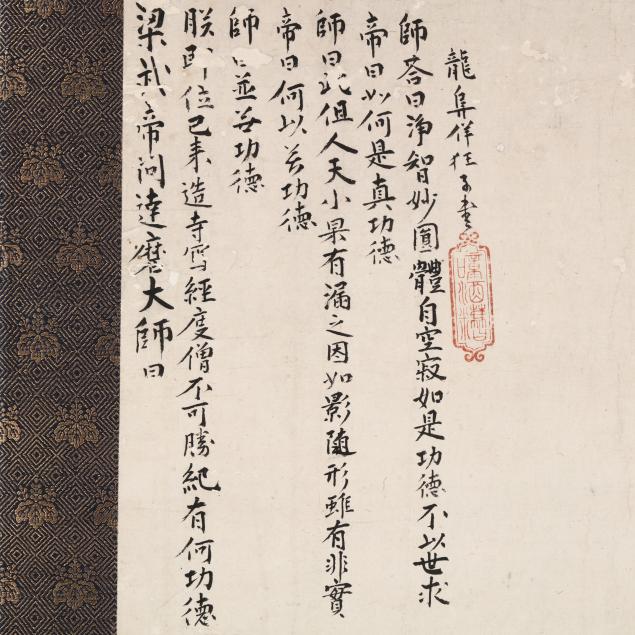 梁武帝問達磨大師曰
朕即位已来造寺写經度僧不可勝紀有何功德
師曰並無功德
帝曰何以無功德
師曰此但人天小果有漏之因如影隨形雖有非實
帝曰如何是真功德
師荅曰淨智妙圓體自空寂如是功德不以世求
龍阜佯狂子書